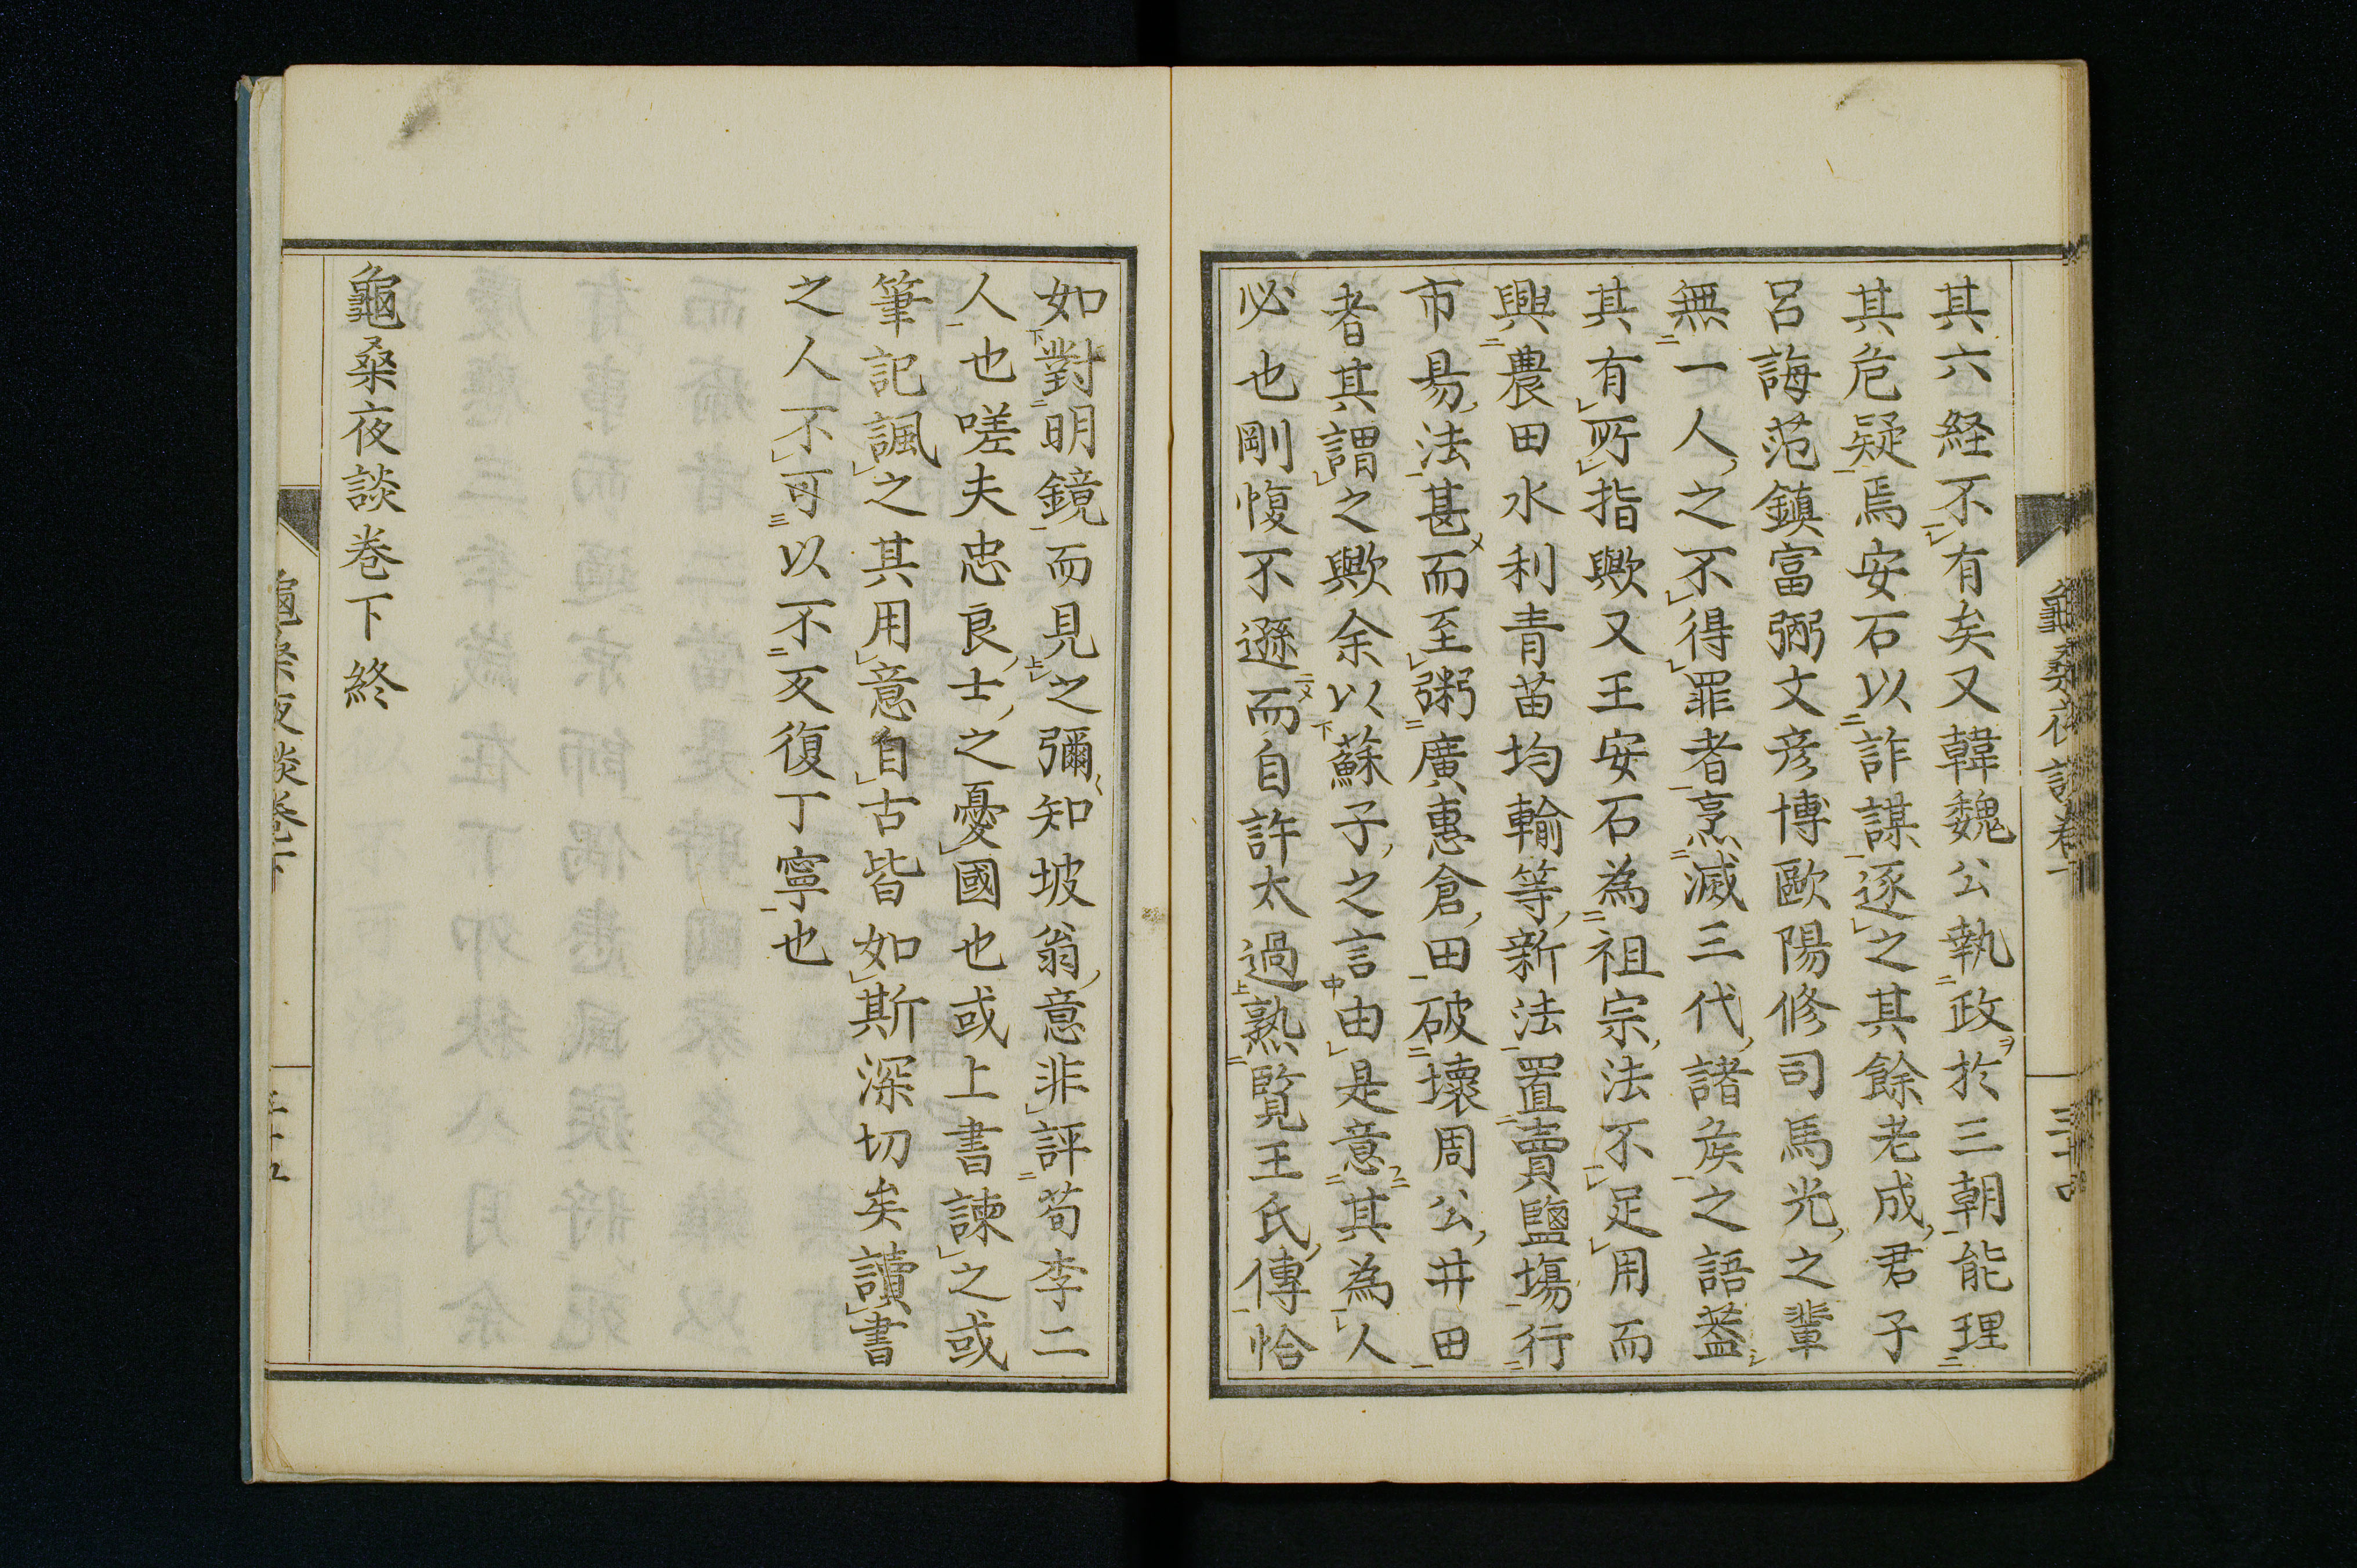 其六経不有矣又韓魏公執政於三朝能理
其危疑焉安石以詐謀逐之其餘老成君子
呂誨范鎮富弼文彦博歐陽修司馬光之輩
無一人之不得罪者焉滅三代諸矦之語葢
其有所指歟又王安石為祖宗法不足用而
興農田水利青苗均輸等新法置賣鹽塲行
市易法甚而至粥廣惠倉田破壞周公井田
者其謂之歟余以蘇子之言由是意其為人
必也剛愎不遜而自許太過熟覧王氏傳恰
如對明鏡而見之彌知坡翁意非評荀李二
人也嗟夫忠良士之憂國也或上書諫之或
筆記諷之其用意自古皆如斯深切矣讀書
之人不可以不反復丁寧也
龜桑夜談巻下終